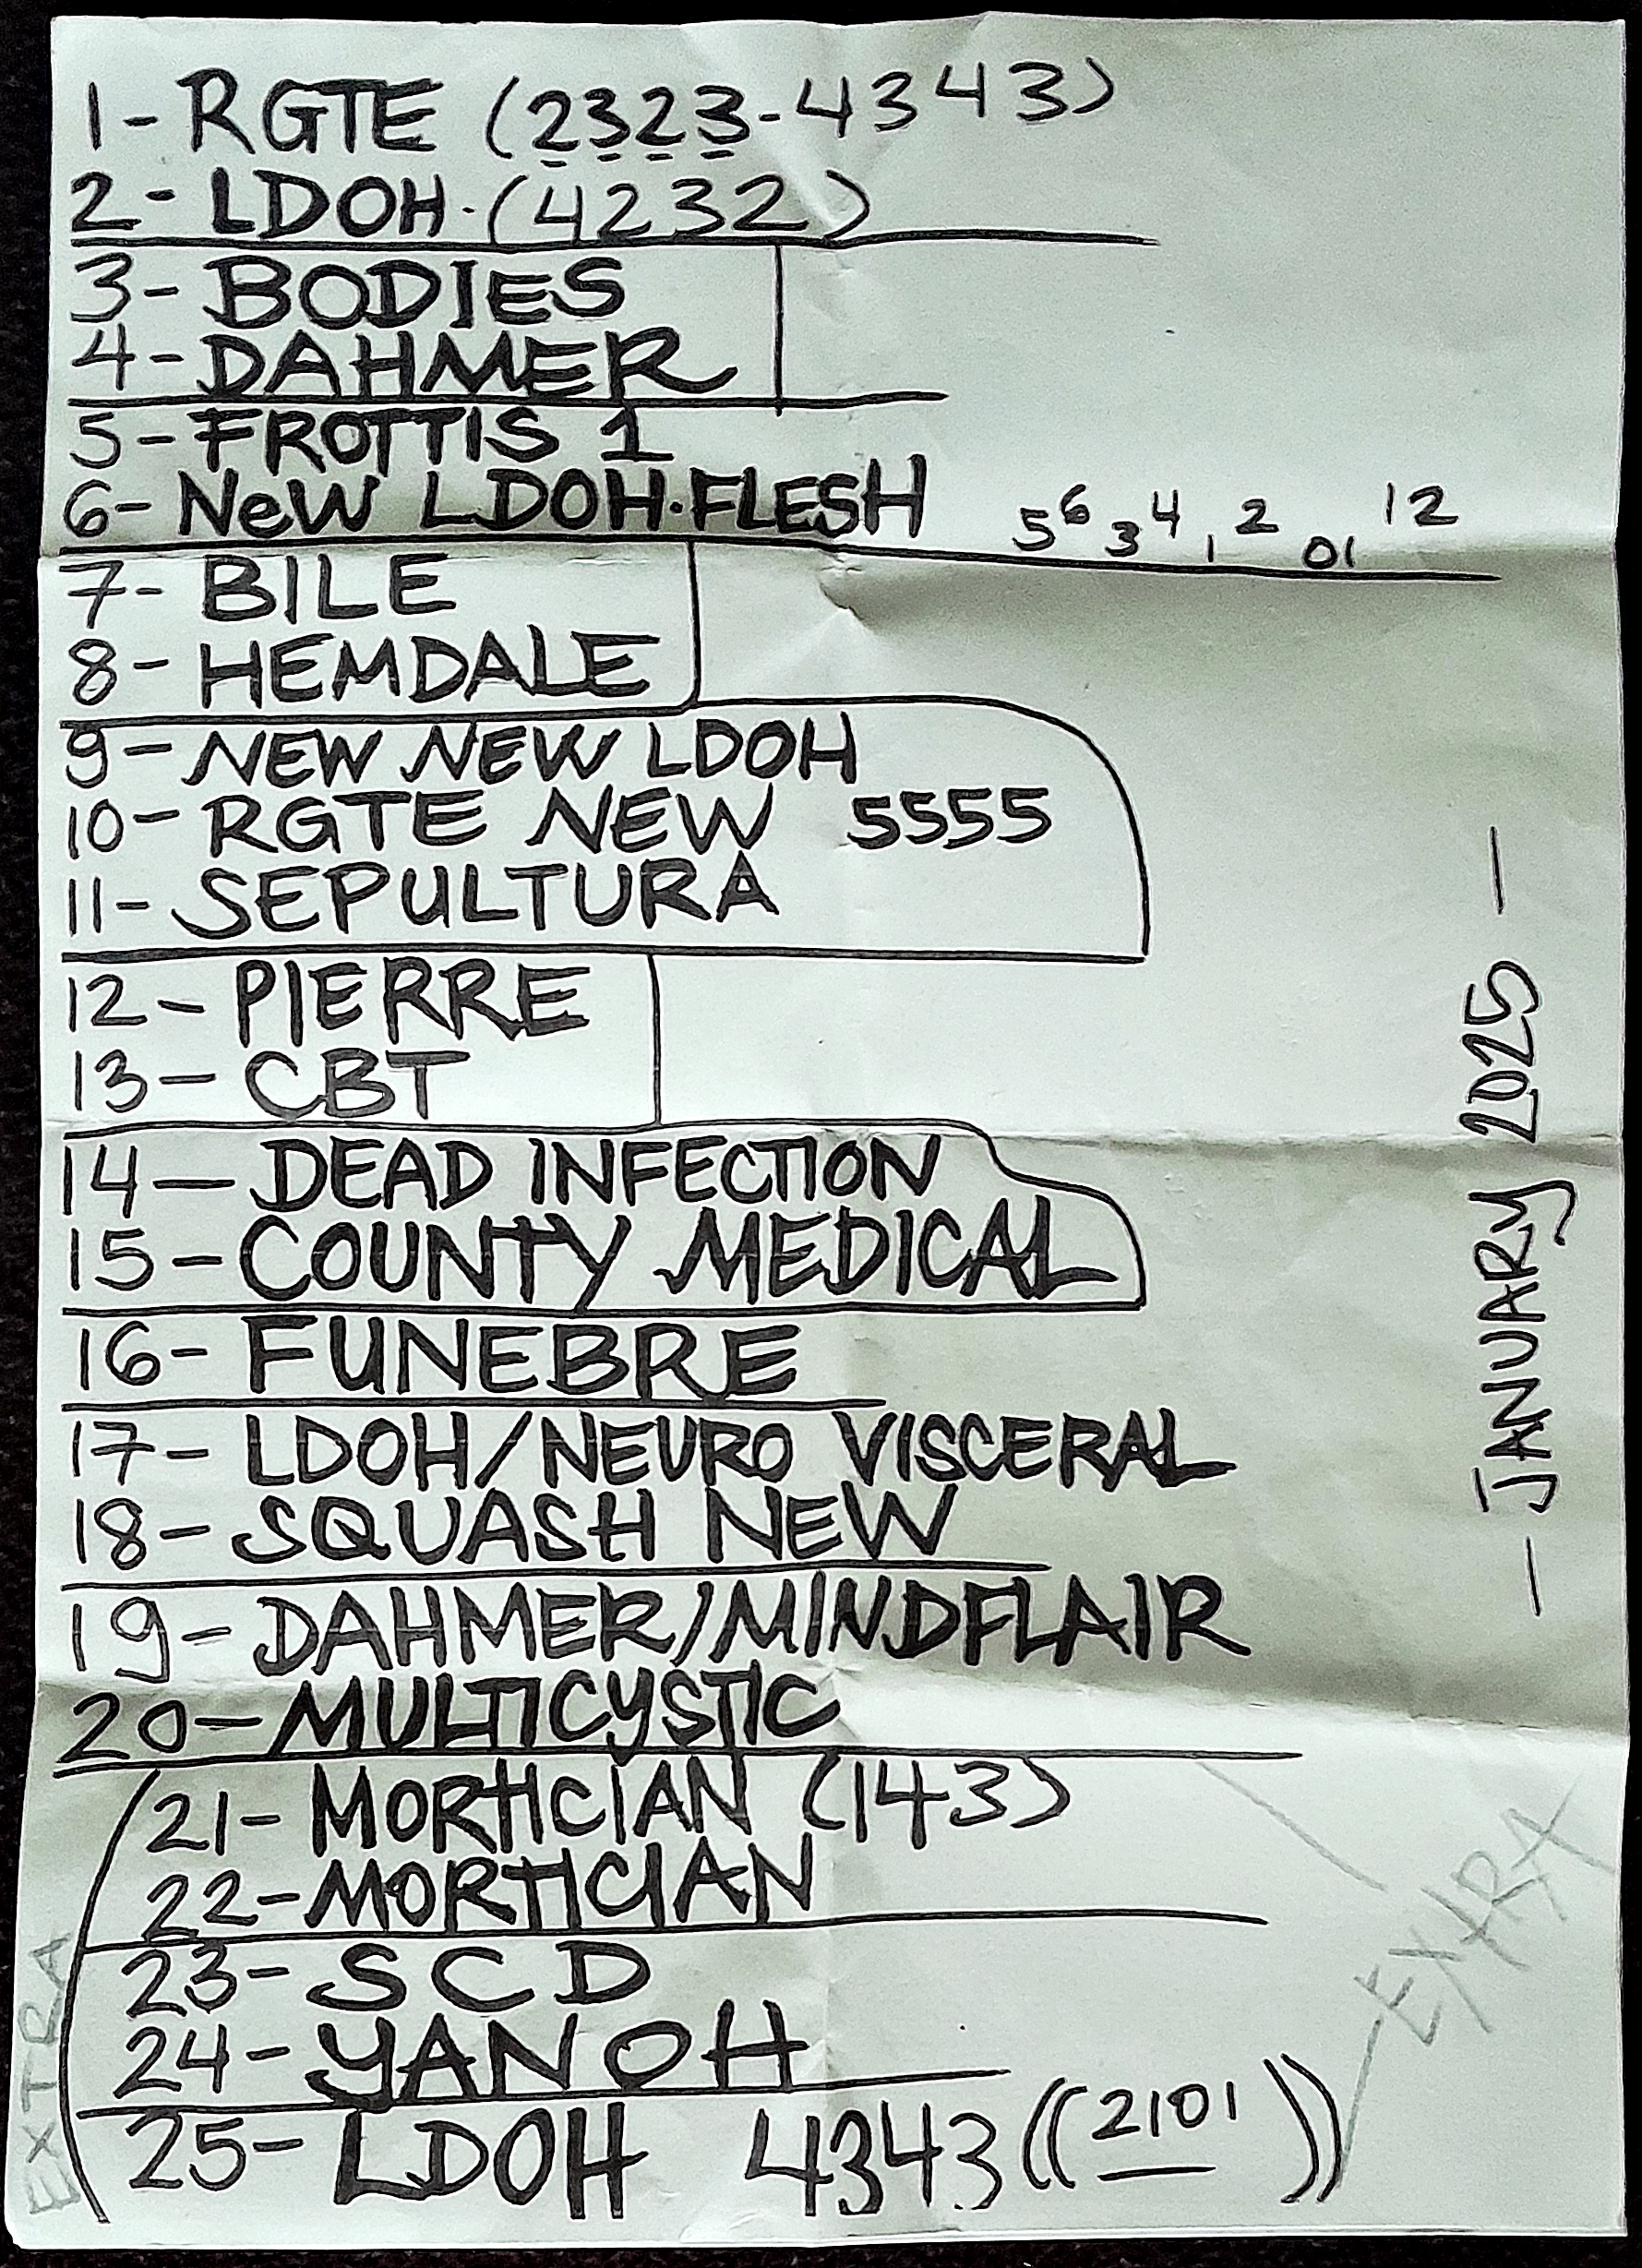 1- RGTE (2323-4343)
2- LDOH·(4232)
3- BODIES
4- DAHMER
5- FROTTIS 1
6- NeW LDOH·FLESH 5 6 3 4 1 2 01 12
7- BILE
8- HEMDALE
9- NEW NEW LDOH
10- RGTE NEW 5555
11- SEPULTURA
12- PIERRE
13- CBT
14- DEAD INFECTION
15- COUNTY MEDICAL
16- FUNEBRE
17- LDOH/NEURO VISCERAL
18- SQUASH NEW
19- DAHMER/MINDFLAIR
20- MULTICYSTIC
21- MORTICIAN (143)
22- MORTICIAN
23- SCD
24- YANOH
25- LDOH 4343 ((2101))
EXTRA
EXTRA
- JANUARY 2025 -